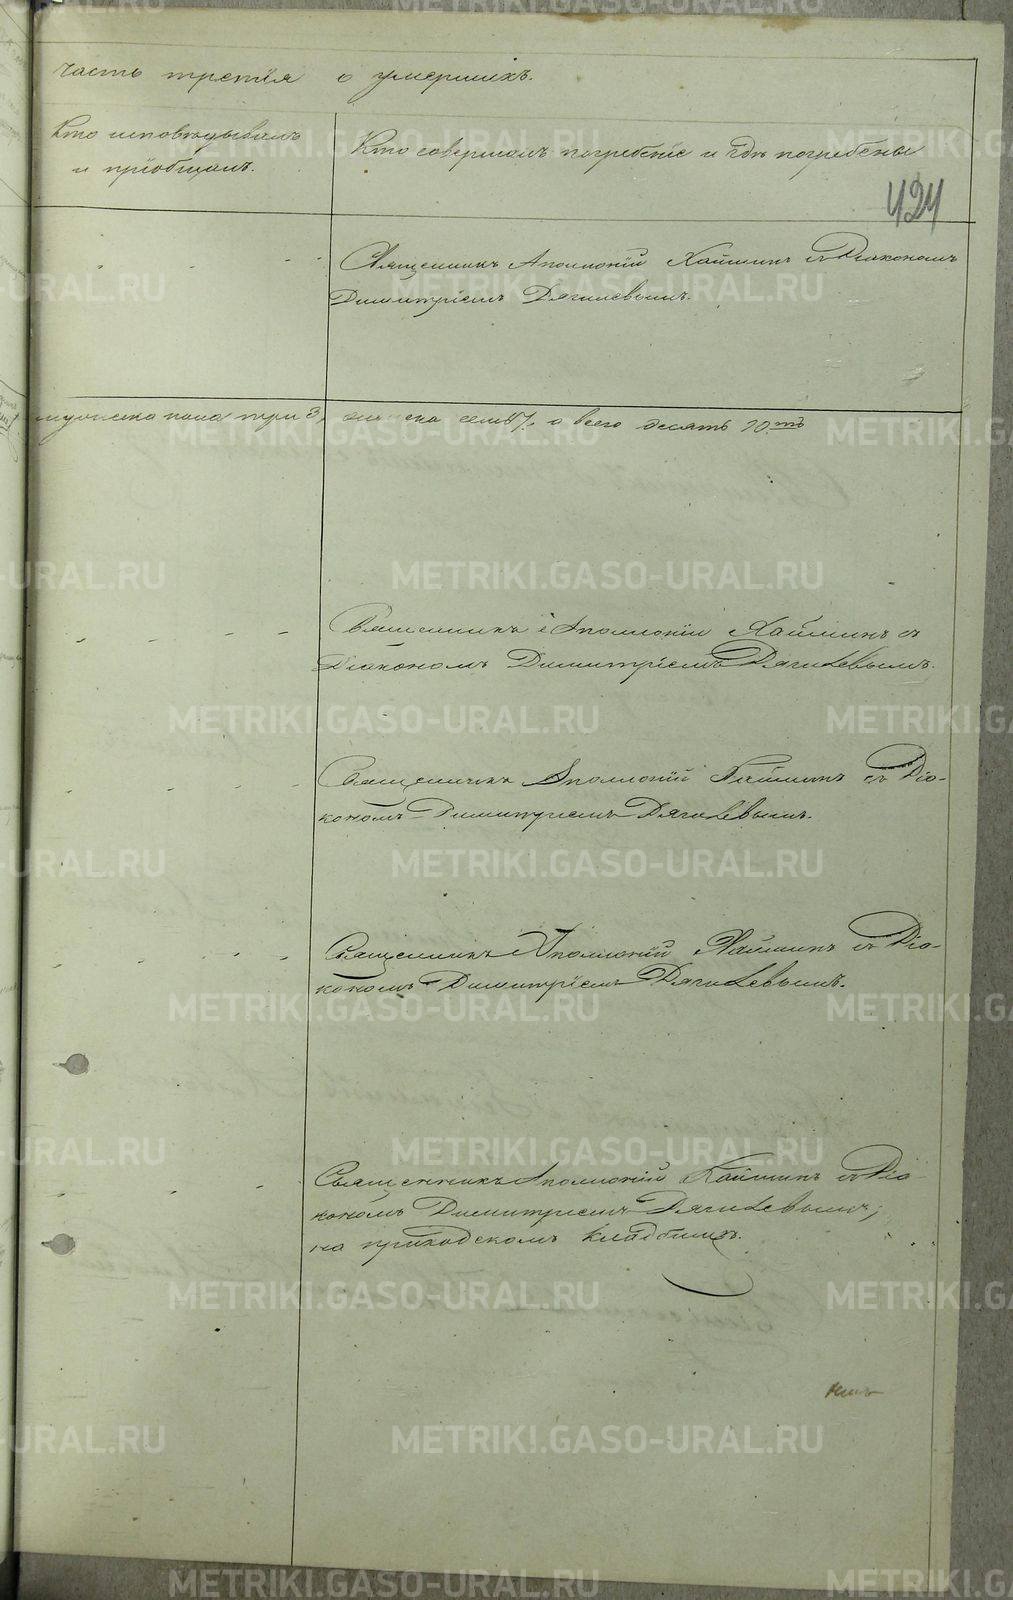 часть третiя о умершихъ.
Кто исповѣдывалъ
и прiобщалъ.
Кто совершалъ погребенiе и гдѣ погребены
424
Священникъ Аполлонiй Хаймин съ Дiакономъ
Димитрiемъ Дягилевымъ.
мужеска пола три 3, женска семь 7, а всего десять 10.ть
Священникъ Аполлонiй Хаймин съ
Дiакономъ Димитрiемъ Дягилевымъ.
Священникъ Аполлонiй Хаймин съ Дiа-
кономъ Димитрiемъ Дягилевымъ.
Священникъ Аполлонiй Хаймин съ Дiа-
кономъ Димитрiемъ Дягилевымъ.
Священникъ Аполлонiй Хаймин съ Дiа-
кономъ Димитрiемъ Дягилевымъ;
на приходскомъ кладбищѣ.
METRIKI.GASO-URAL.RU